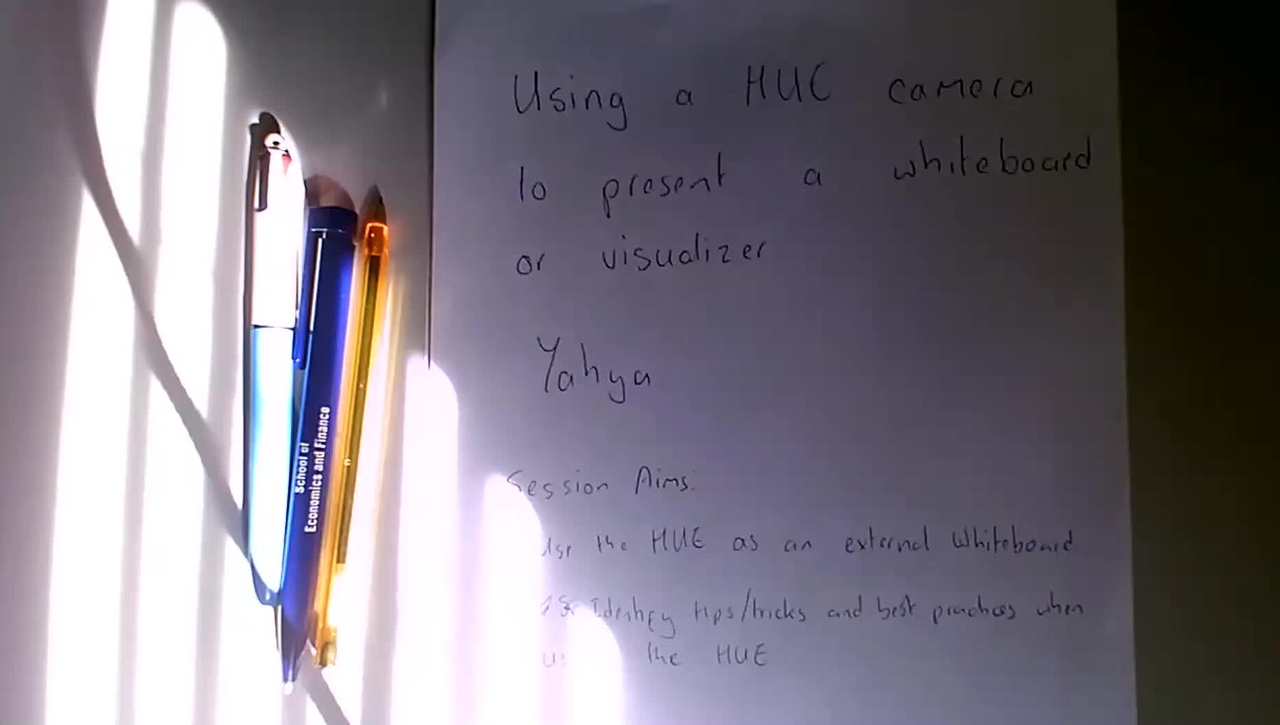 Using a HUE camera
to present a whiteboard
or visualizer
Yahya
Session Aims:
Use the HUE as an external Whiteboard
Identify tips/tricks and best practices when
the HUE
School of
Economics and Finance